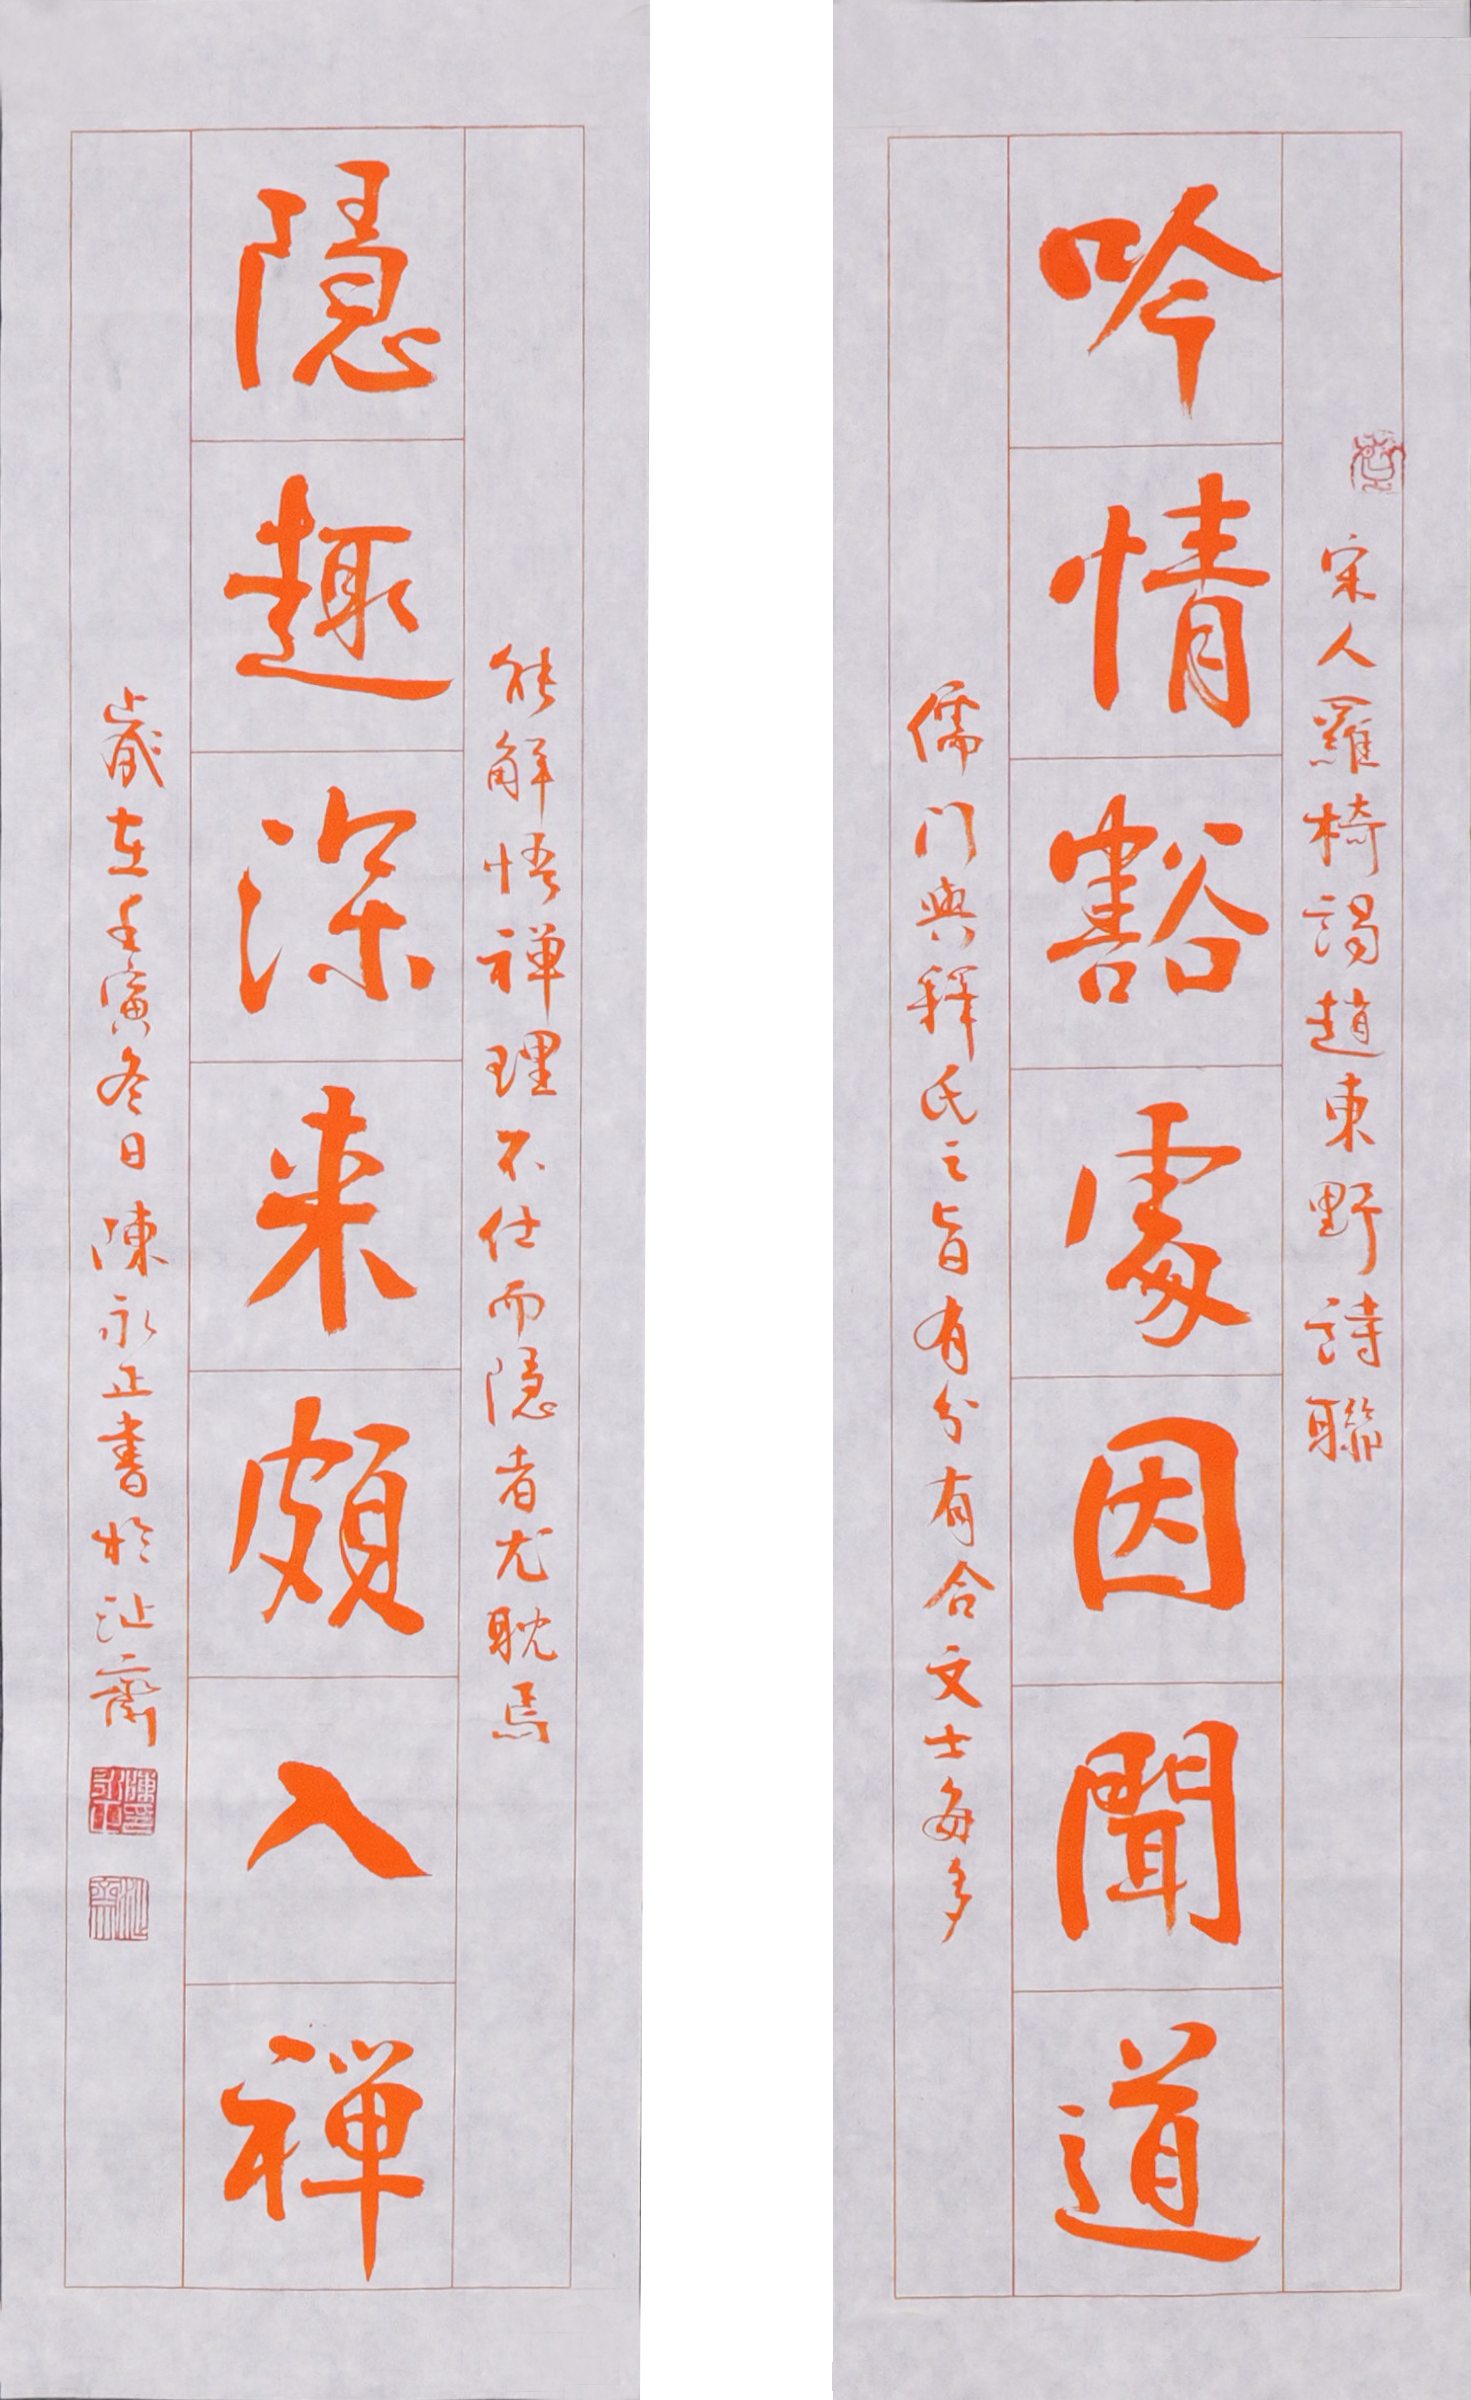 宋人羅椅謁趙東野詩聯
吟情豁處因聞道
儒门與釋氏之旨有分有合文士每多
能解悟禅理不仕而隐者尤耽焉
隐趣深来頗入禅
歲在壬寅冬日陳永正書於沚齋
陳永正印
沚齋